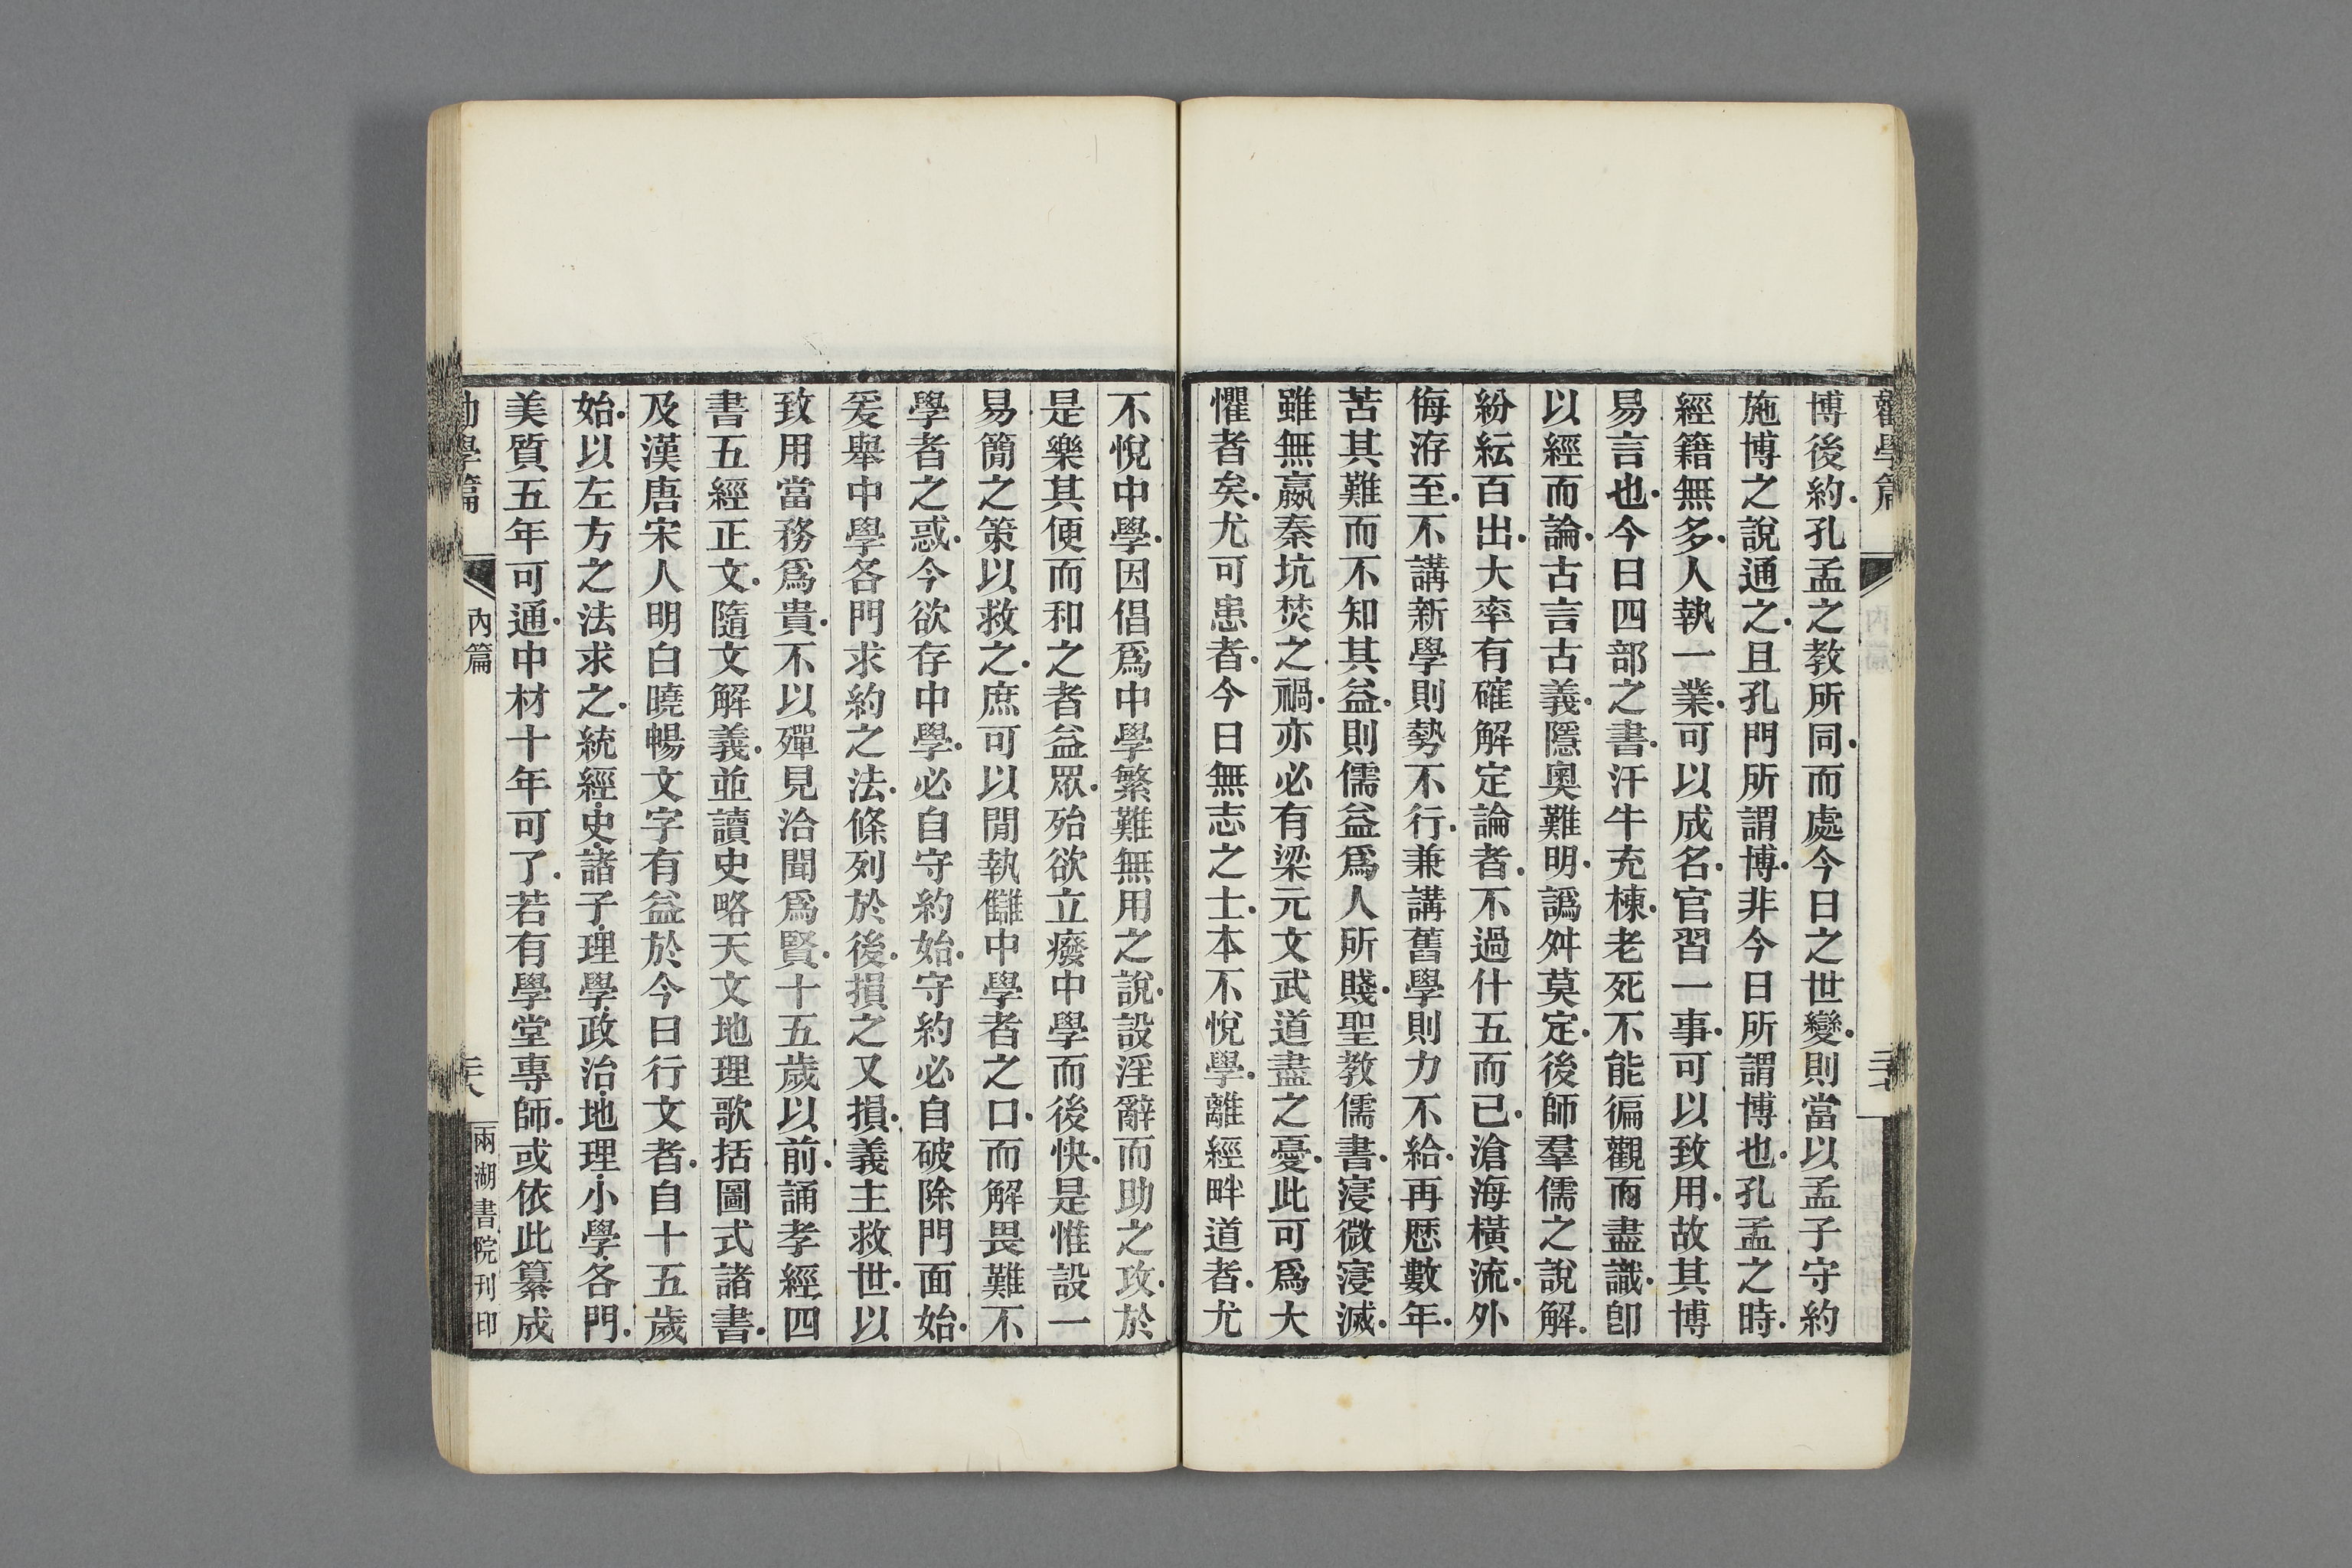 勸學篇
二十七
博後約.孔孟之教所同.而處今日之世變.則當以孟子守約
施博之說通之.且孔門所謂博.非今日所謂博也.孔孟之時.
經籍無多.人執一業.可以成名.官習一事.可以致用.故其博
易言也.今日四部之書.汗牛充棟.老死不能徧觀而盡識.卽
以經而論.古言古義.隱奧難明.譌舛莫定.後師羣儒之說解.
紛紜百出.大率有確解定論者.不過什五而已.滄海橫流.外
侮洊至.不講新學則勢不行.兼講舊學則力不給.再歷數年.
苦其難而不知其益.則儒益爲人所賤.聖教儒書.寖微寖滅.
雖無嬴秦坑焚之禍.亦必有梁元文武道盡之憂.此可爲大
懼者矣.尤可患者.今日無志之士.本不悅學.離經畔道者.尤
不悅中學.因倡爲中學繁難無用之說.設淫辭而助之攻.於
是樂其便而和之者益眾.殆欲立廢中學而後快.是惟設一
易簡之策以救之.庶可以閒執讎中學者之口.而解畏難不
學者之惑.今欲存中學.必自守約始.守約必自破除門面始.
爰舉中學各門求約之法.條列於後.損之又損.義主救世.以
致用當務爲貴.不以殫見洽聞爲賢.十五歲以前.誦孝經四
書五經正文.隨文解義.並讀史略天文地理歌括圖式諸書.
及漢唐宋人明白曉暢文字有益於今日行文者.自十五歲
始.以左方之法求之.統經.史.諸子.理學.政治.地理.小學.各門.
美質五年可通.中材十年可了.若有學堂專師.或依此纂成
勸學篇
內篇
二十八
兩湖書院刊印